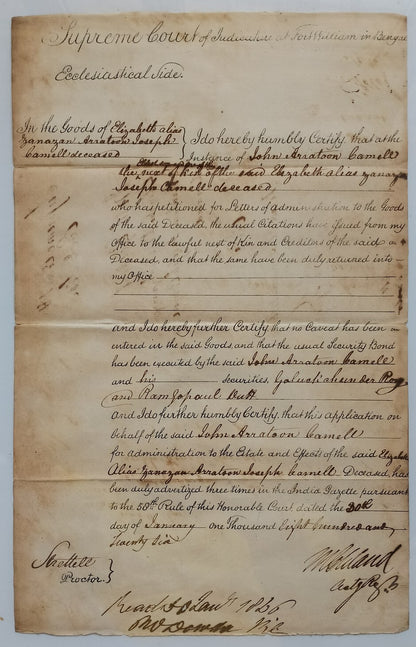 Supreme Court of Judicature at Fort William in Bengal
Ecclesiastical Side.
In the Goods of Elizabeth alias
Zanazan Arratoon Joseph
Camell deceased
I do hereby humbly Certify, that at the
Instance of John Arratoon Camell
the next of Kin of the said Elizabeth alias Zanazan
Joseph Camell deceased
who has petitioned for Letters of administration to the Goods
of the said Deceased, the usual Citations have issued from my
Office to the lawful next of Kin and Creditors of the said
Deceased, and that the same have been duly returned into
my Office
and I do hereby further Certify that no Caveat has been
entered in the said Goods and that the usual Security Bond
has been executed by the said John Arratoon Camell
and his securities
and Ramgopaul Dutt
And I do further humbly Certify, that this application on
behalf of the said John Arratoon Camell
for administration to the Estate and Effects of the said Elizabeth
Alias Zanazan Arratoon Joseph Camell Deceased, has
been duly advertized three times in the India Gazette pursuant
to the 58th Rule of this Honorable Court dated the 30th
day of January one Thousand Eight hundred and
Twenty Six
Strettell
Proctor.
Read 30 Jany 1826